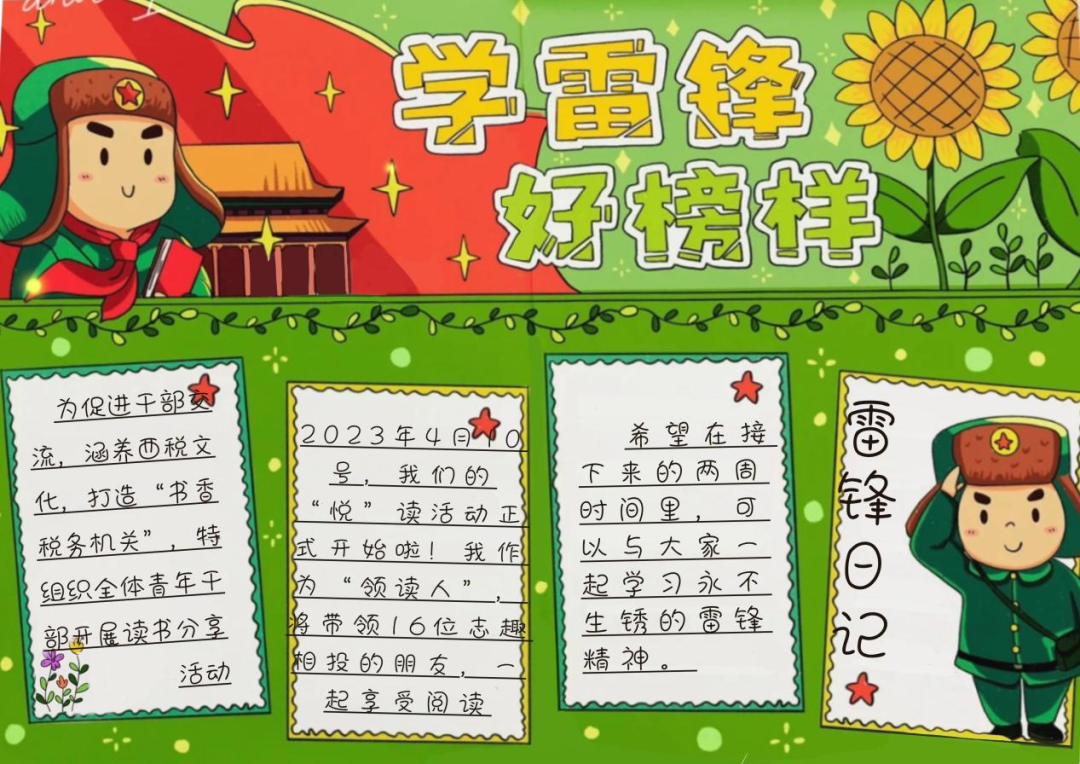 学雷锋
好榜样
为促进干部交
流，涵养西税文
化，打造“书香
税务机关”，特
组织全体青年干
部开展读书分享
活动
2023年4月10
号，我们的
“悦”读活动正
式开始啦！我作
为“领读人”，
将带领16位志趣
相投的朋友，一
起享受阅读
希望在接
下来的两周
时间里，可
以与大家一
起学习永不
生锈的雷锋
精神。
雷锋日记